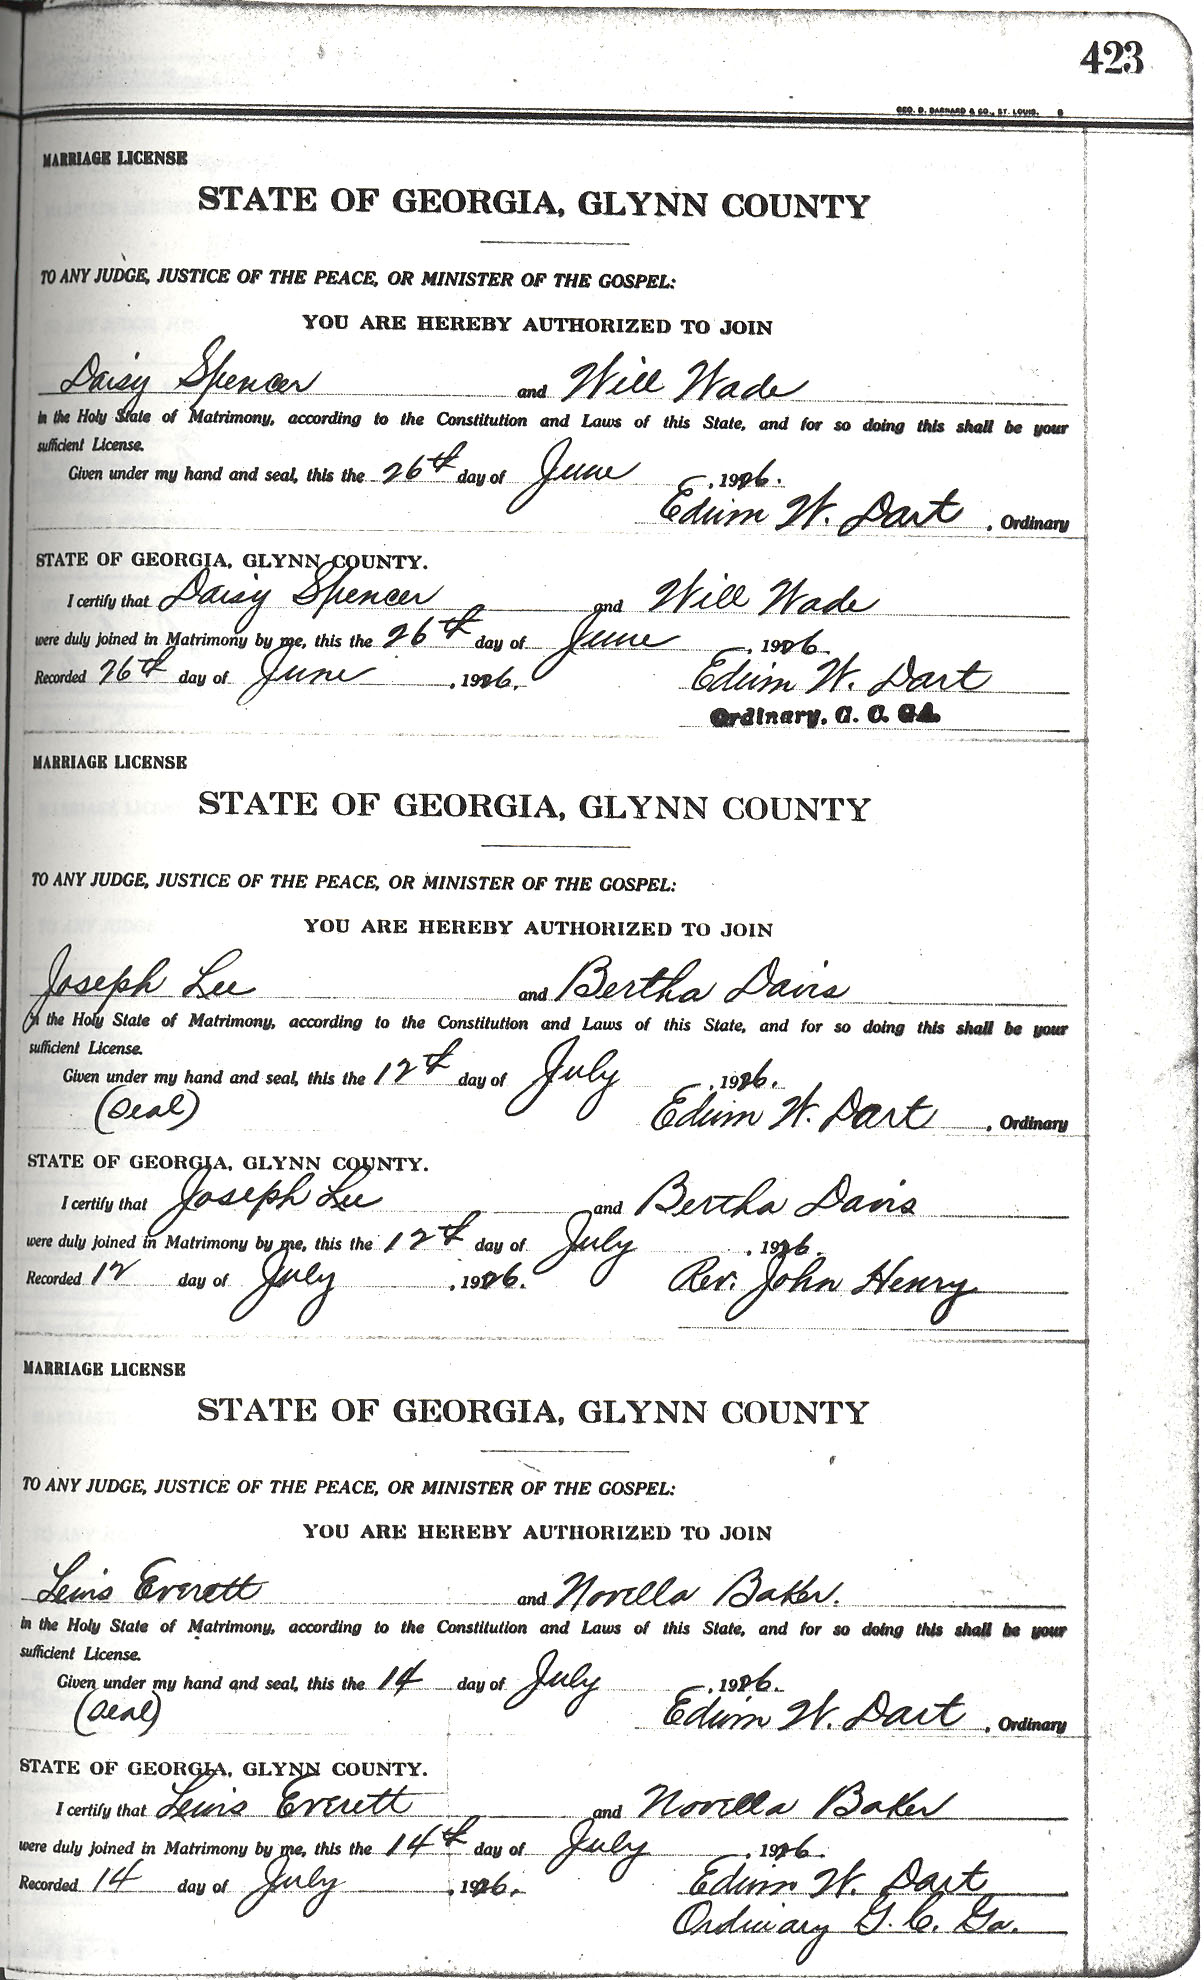 423
GEO. D. BARNARD & CO., ST. LOUIS. 8
MARRIAGE LICENSE
STATE OF GEORGIA, GLYNN COUNTY
TO ANY JUDGE, JUSTICE OF THE PEACE, OR MINISTER OF THE GOSPEL:
YOU ARE HEREBY AUTHORIZED TO JOIN
Daisy Spencer and Will Wade
in the Holy State of Matrimony, according to the Constitution and Laws of this State, and for so doing this shall be your
sufficient License.
Given under my hand and seal, this the 26th day of June, 1926.
Edwin W. Dart, Ordinary
STATE OF GEORGIA, GLYNN COUNTY.
I certify that Daisy Spencer and Will Wade
were duly joined in Matrimony by me, this the 26th day of June, 1926.
Recorded 26th day of June, 1926. Edwin W. Dart
Ordinary, G. C. GA.
MARRIAGE LICENSE
STATE OF GEORGIA, GLYNN COUNTY
TO ANY JUDGE, JUSTICE OF THE PEACE, OR MINISTER OF THE GOSPEL:
YOU ARE HEREBY AUTHORIZED TO JOIN
Joseph Lee and Bertha Davis
in the Holy State of Matrimony, according to the Constitution and Laws of this State, and for so doing this shall be your
sufficient License.
Given under my hand and seal, this the 12th day of July, 1926.
(Seal) Edwin W. Dart, Ordinary
STATE OF GEORGIA, GLYNN COUNTY.
I certify that Joseph Lee and Bertha Davis
were duly joined in Matrimony by me, this the 12th day of July, 1926.
Recorded 12 day of July, 1926. Rev. John Henry
MARRIAGE LICENSE
STATE OF GEORGIA, GLYNN COUNTY
TO ANY JUDGE, JUSTICE OF THE PEACE, OR MINISTER OF THE GOSPEL:
YOU ARE HEREBY AUTHORIZED TO JOIN
Lewis Everett and Novella Baker.
in the Holy State of Matrimony, according to the Constitution and Laws of this State, and for so doing this shall be your
sufficient License.
Given under my hand and seal, this the 14 day of July, 1926.
(Seal) Edwin W. Dart, Ordinary
STATE OF GEORGIA, GLYNN COUNTY.
I certify that Lewis Everett and Novella Baker
were duly joined in Matrimony by me, this the 14th day of July, 1926.
Recorded 14 day of July, 1926. Edwin W. Dart
Ordinary G. C. Ga.